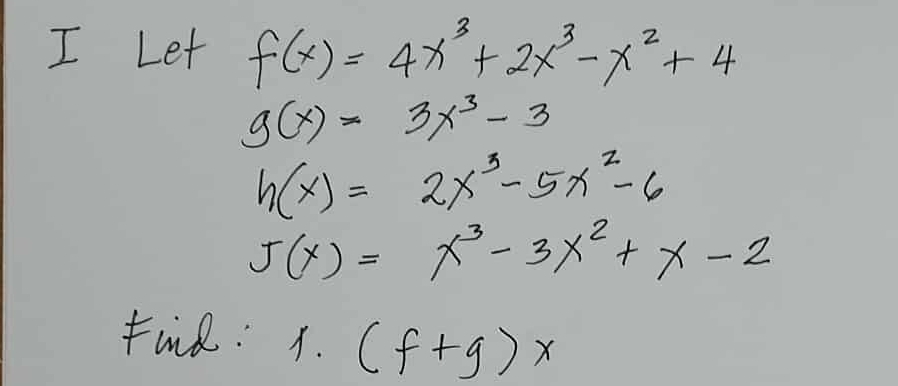 I Let f(x) = 4x³ + 2x³ - x² + 4
g(x) = 3x³ - 3
h(x) = 2x³ - 5x² - 6
J(x) = x³ - 3x² + x - 2
Find: 1. (f+g)x